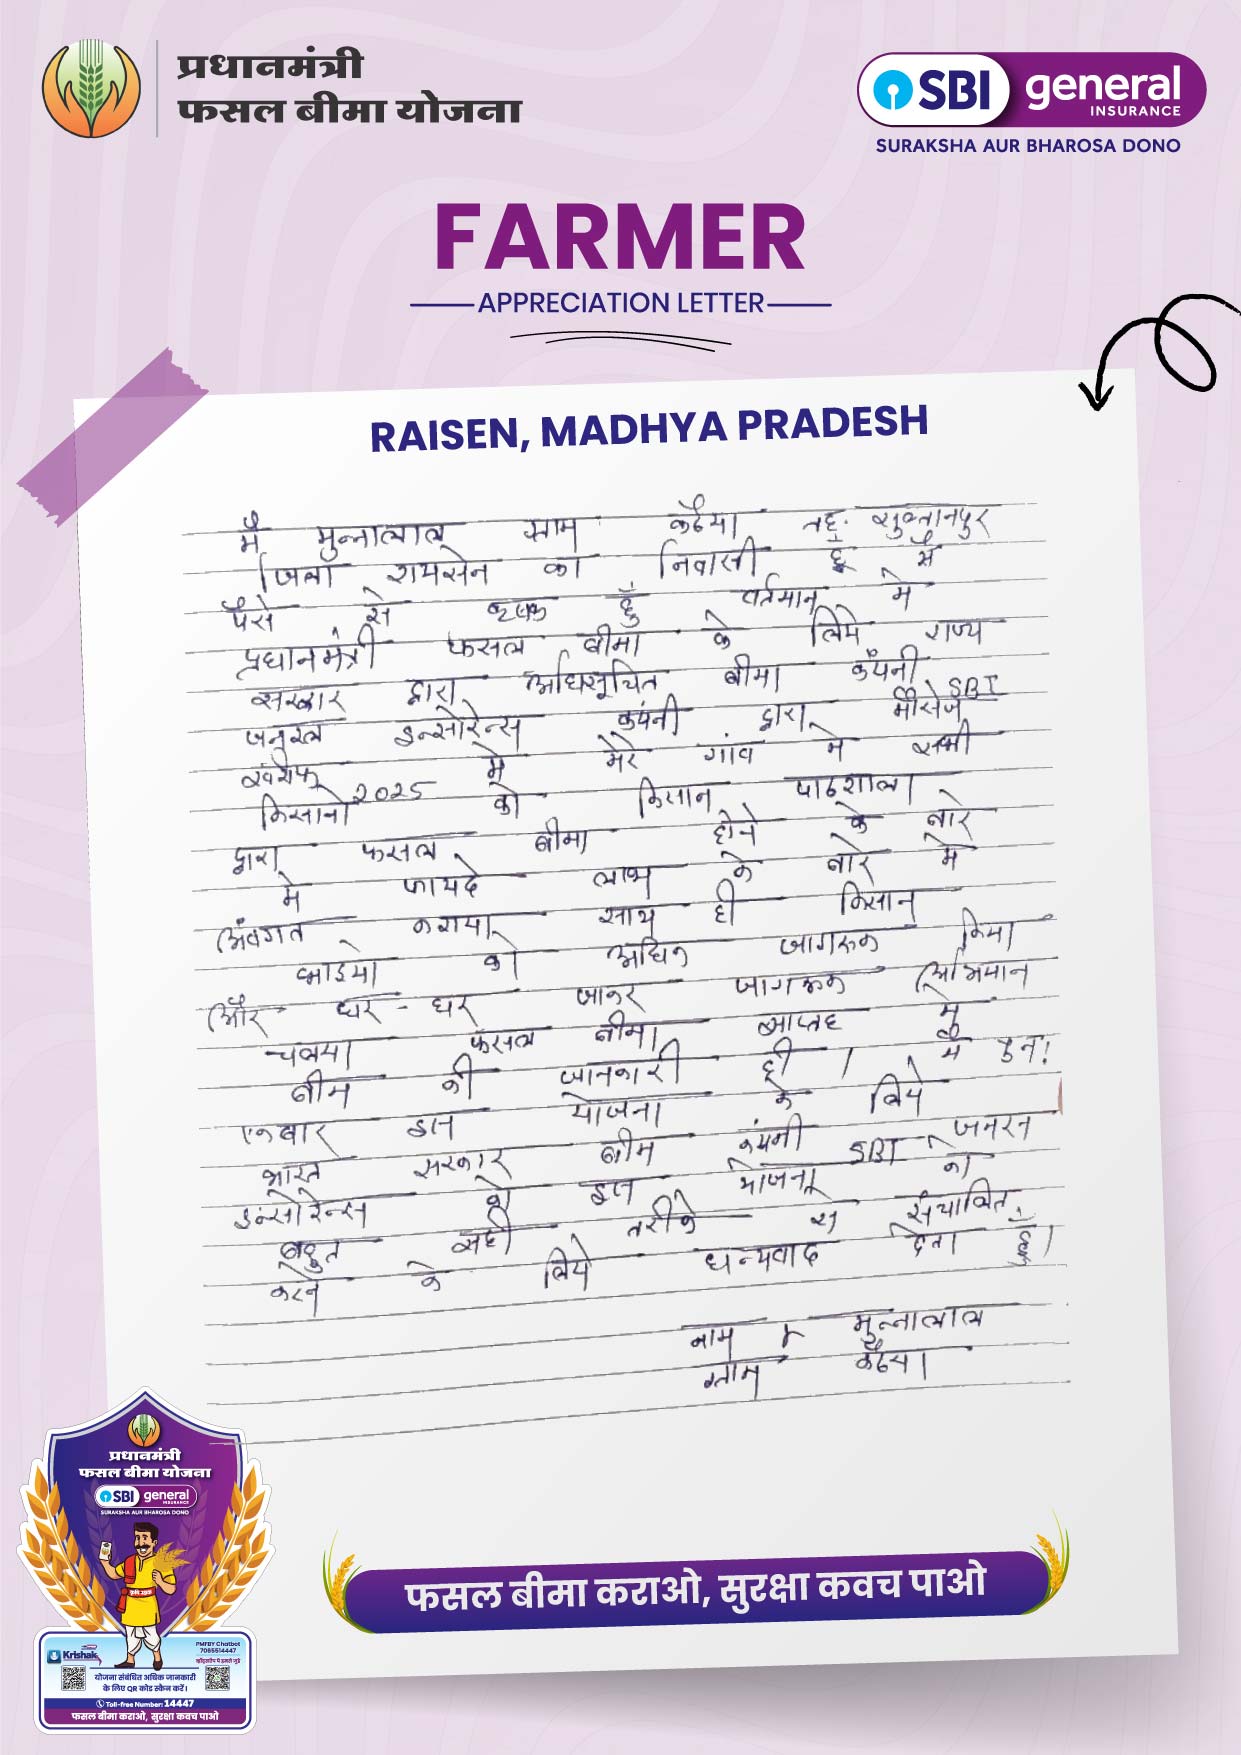 प्रधानमंत्री
फसल बीमा योजना
SBI general
INSURANCE
SURAKSHA AUR BHAROSA DONO
FARMER
APPRECIATION LETTER
RAISEN, MADHYA PRADESH
मै मुन्नालाल ग्राम कढैया तह. सुल्तानपुर
जिला रायसेन का निवासी हूं मै
पैसे से कृषक हूँ वर्तमान मे
प्रधानमंत्री फसल बीमा के लिये राज्य
सरकार द्वारा अधिसूचित बीमा कंपनी
जनरल इन्सोरेन्स कंपनी द्वारा मौसेज SBI
खरीफ 2025 मे मेरे गांव मे सभी
किसानो को किसान पाठशाला
द्वारा फसल बीमा होने के बारे
मे फायदे लाभ के बारे मे
अवगत कराया साथ ही किसान
भाईयो को अधिक जागरूक किया
और घर - घर जाकर जागरूक अभियान
चलाया फसल बीमा सप्ताह मे
बीमा की जानकारी दी । मै
एकबार इस योजना के लिये
भारत सरकार बीमा कंपनी SBI जनरल
इन्सोरेन्स को इस योजना का
बहुत सही तरीके से संचालित
करने के लिये धन्यवाद देता हूँ।
नाम मुन्नालाल
ग्राम कढैया
प्रधानमंत्री
फसल बीमा योजना
SBI general
INSURANCE
SURAKSHA AUR BHAROSA DONO
Krishak
PMFBY Chatbot
7065514447
योजना संबंधित अधिक जानकारी
के लिए QR कोड स्कैन करें।
Toll-free Number: 14447
फसल बीमा कराओ, सुरक्षा कवच पाओ
फसल बीमा कराओ, सुरक्षा कवच पाओ